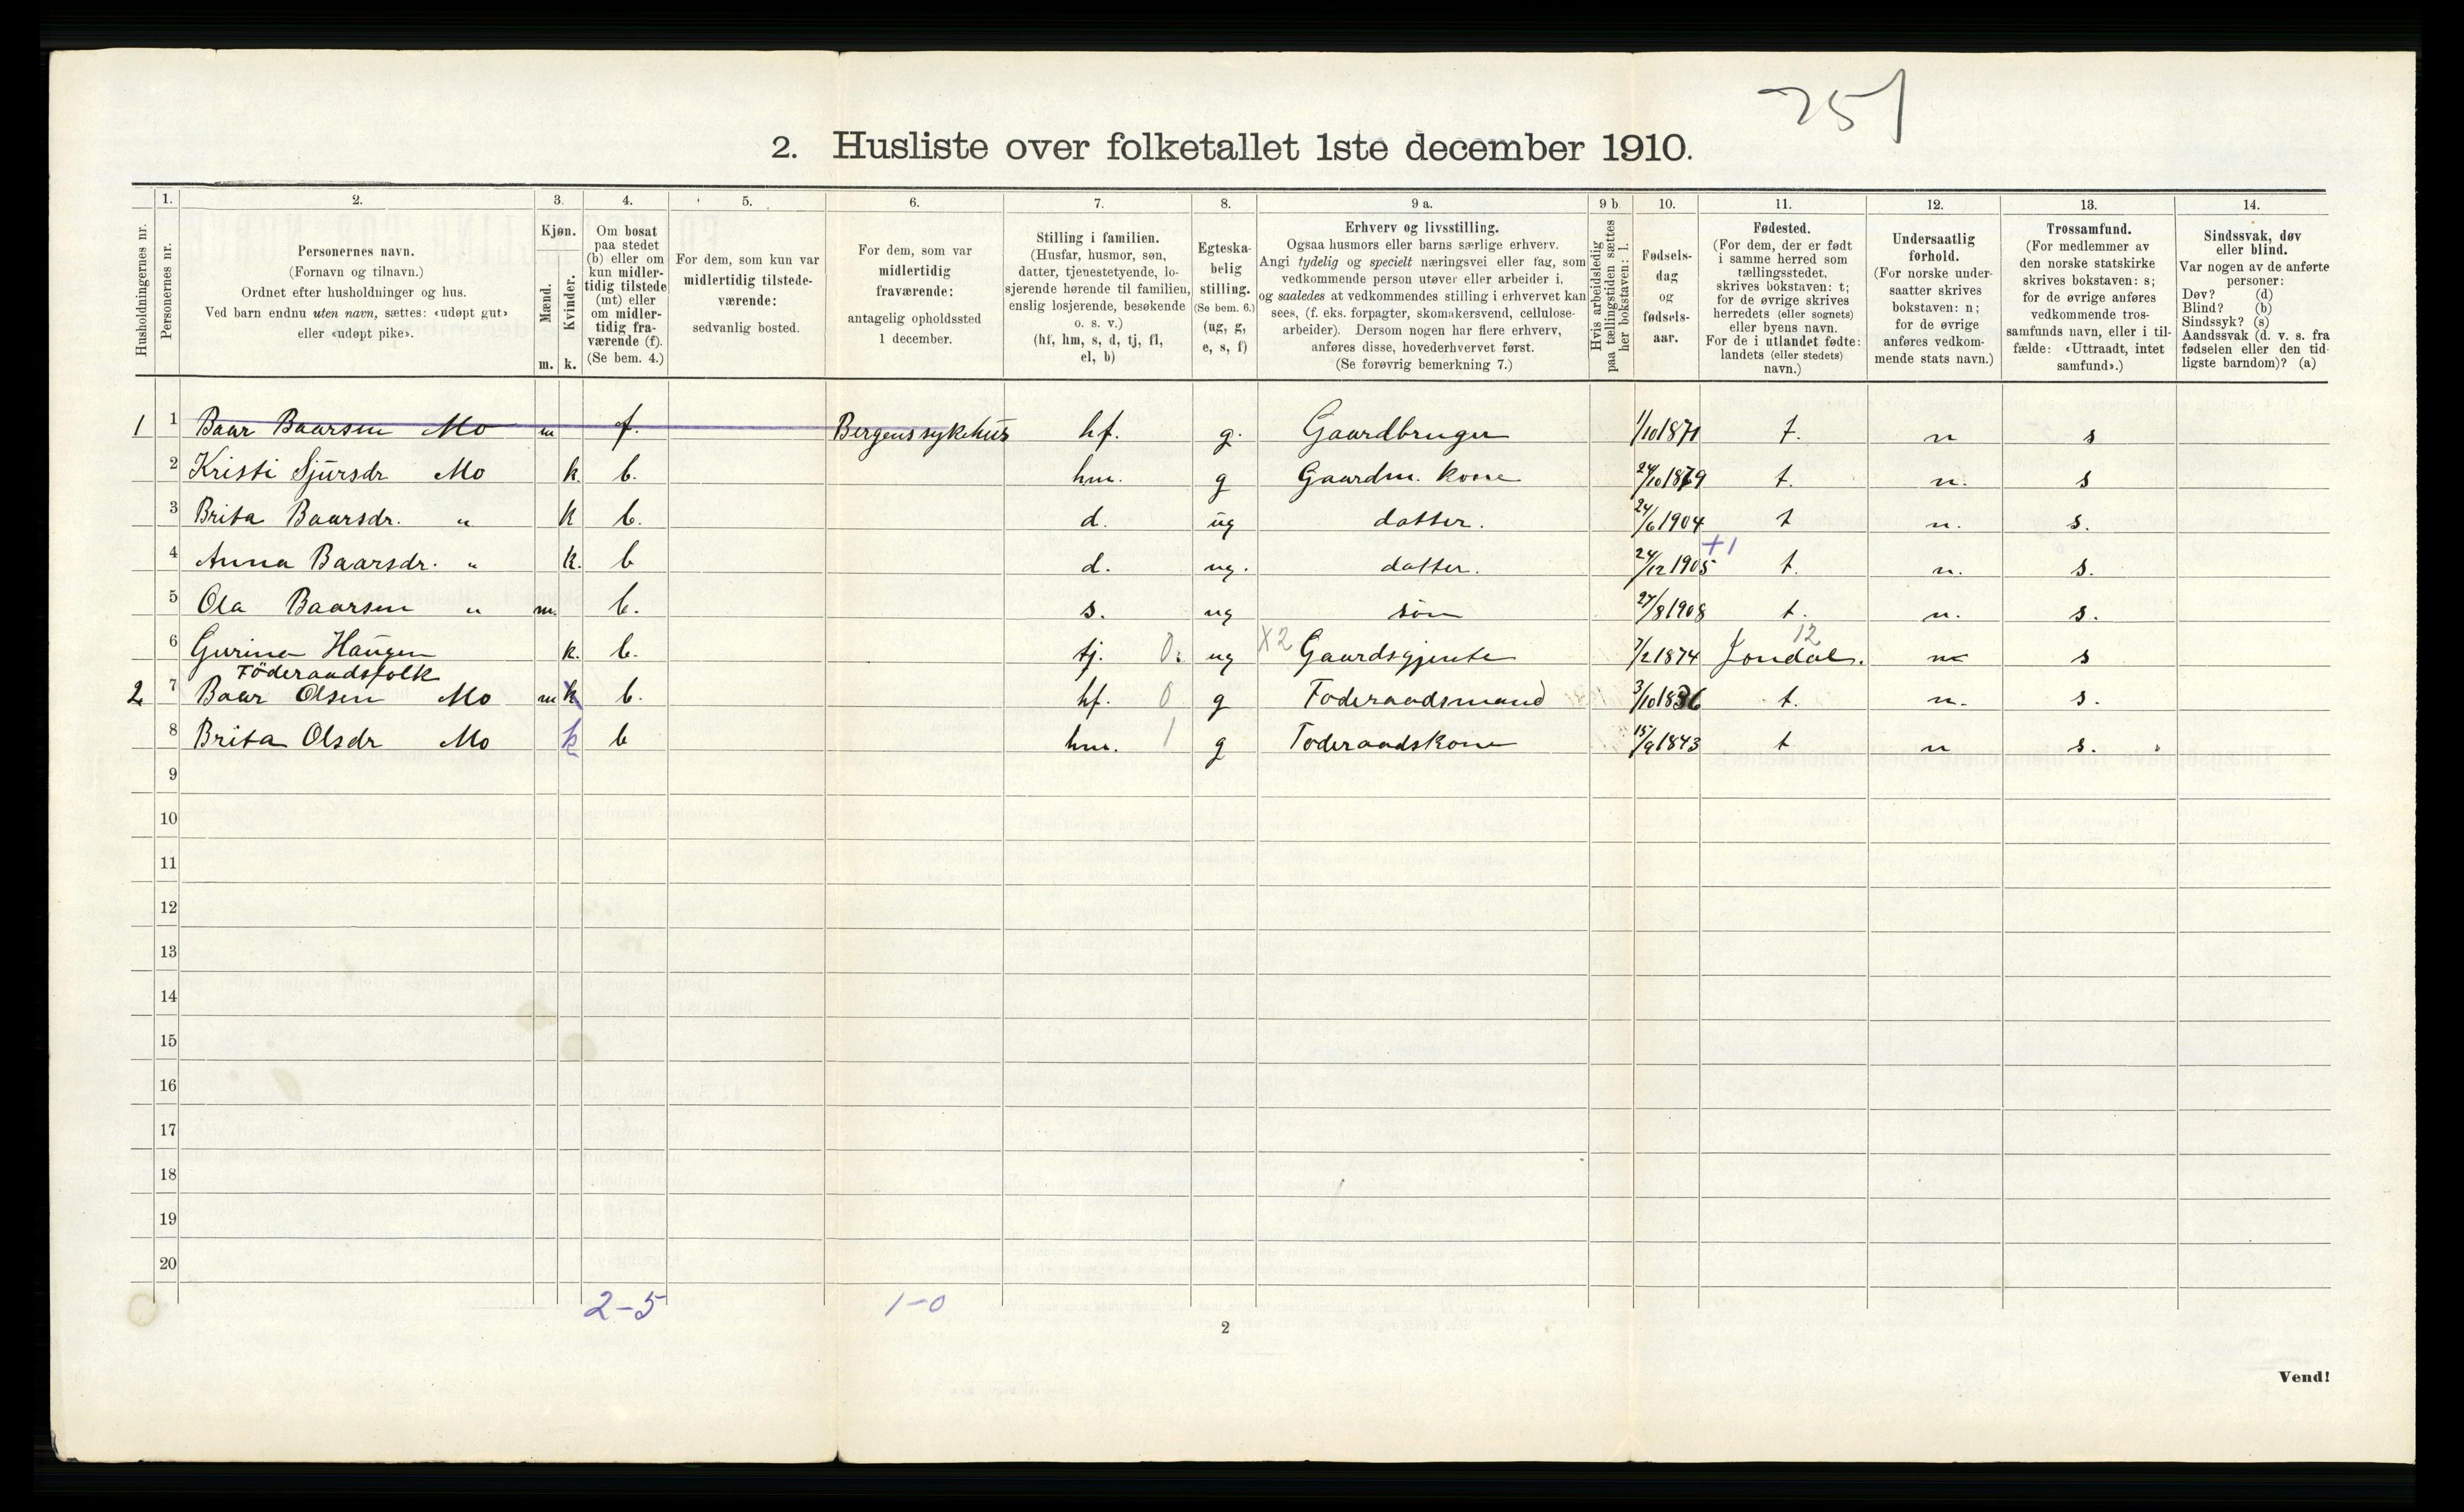 251
2. Husliste over folketallet 1ste december 1910.
1. 2. 3. 4. 5. 6. 7. 8. 9 a. 9 b. 10. 11. 12. 13. 14.
Husholdningernes nr.
Personernes nr.
Personernes navn.
(Fornavn og tilnavn.)
Ordnet efter husholdninger og hus.
Ved barn endnu uten navn, sættes: «udøpt gut»
eller «udøpt pike».
Kjøn.
Mænd.
Kvinder.
m. k.
Om bosat
paa stedet
(b) eller om
kun midler-
tidig tilstede
(mt) eller
om midler-
tidig fra-
værende (f).
(Se bem. 4.)
For dem, som kun var
midlertidig tilstede-
værende:
sedvanlig bosted.
For dem, som var
midlertidig
fraværende:
antagelig opholdssted
1 december.
Stilling i familien.
(Husfar, husmor, søn,
datter, tjenestetyende, lo-
sjerende hørende til familien,
enslig losjerende, besøkende
o. s. v.)
(hf, hm, s, d, tj, fl,
el, b)
Egteska-
belig
stilling.
(Se bem. 6.)
(ug, g,
e, s, f)
Erhverv og livsstilling.
Ogsaa husmors eller barns særlige erhverv.
Angi tydelig og specielt næringsvei eller fag, som
vedkommende person utøver eller arbeider i,
og saaledes at vedkommendes stilling i erhvervet kan
sees, (f. eks. forpagter, skomakersvend, cellulose-
arbeider). Dersom nogen har flere erhverv,
anføres disse, hovederhvervet først.
(Se forøvrig bemerkning 7.)
Hvis arbeidsledig
paa tællingstiden sættes
her bokstaven: l.
Fødsels-
dag
og
fødsels-
aar.
Fødested.
(For dem, der er født
i samme herred som
tællingsstedet,
skrives bokstaven: t;
for de øvrige skrives
herredets (eller sognets)
eller byens navn.
For de i utlandet fødte:
landets (eller stedets)
navn.)
Undersaatlig
forhold.
(For norske under-
saatter skrives
bokstaven: n;
for de øvrige
anføres vedkom-
mende stats navn.)
Trossamfund.
(For medlemmer av
den norske statskirke
skrives bokstaven: s;
for de øvrige anføres
vedkommende tros-
samfunds navn, eller i til-
fælde: «Uttraadt, intet
samfund».)
Sindssvak, døv
eller blind.
Var nogen av de anførte
personer:
Døv? (d)
Blind? (b)
Sindssyk? (s)
Aandssvak (d. v. s. fra
fødselen eller den tid-
ligste barndom)? (a)
1 1 Baar Baarsen Mo m f. Bergens sykehus hf. g. Gaardbruger 1/10 1871 t. n s
2 Kristi Sjursdr Mo k. b. hm. g Gaardm. Kone 24/10 1879 t. n. s
3 Brita Baarsdr. " k b. d. ug datter. 24/6 1904 t n. s.
+1
4 Anna Baarsdr. " k. b d. ug. datter. 24/12 1905 t. n. s.
5 Ola Baarsen " m. b. s. ug søn 27/8 1908 t. n. s.
12
6 Gurina Haugen k. b. tj. 0. ug X2 Gaardsgjente 7/2 1874 Jondal. n s
Föderaadsfolk
2 7 Baar Olsen Mo m k b. hf. 0 g Föderaadsmand 3/10 1836 t. n. s.
8 Brita Olsdr Mo k b hm. 1 g Föderaadskone 15/9 1843 t n s.
9
10
11
12
13
14
15
16
17
18
19
20
2-5 1-0
2
Vend!